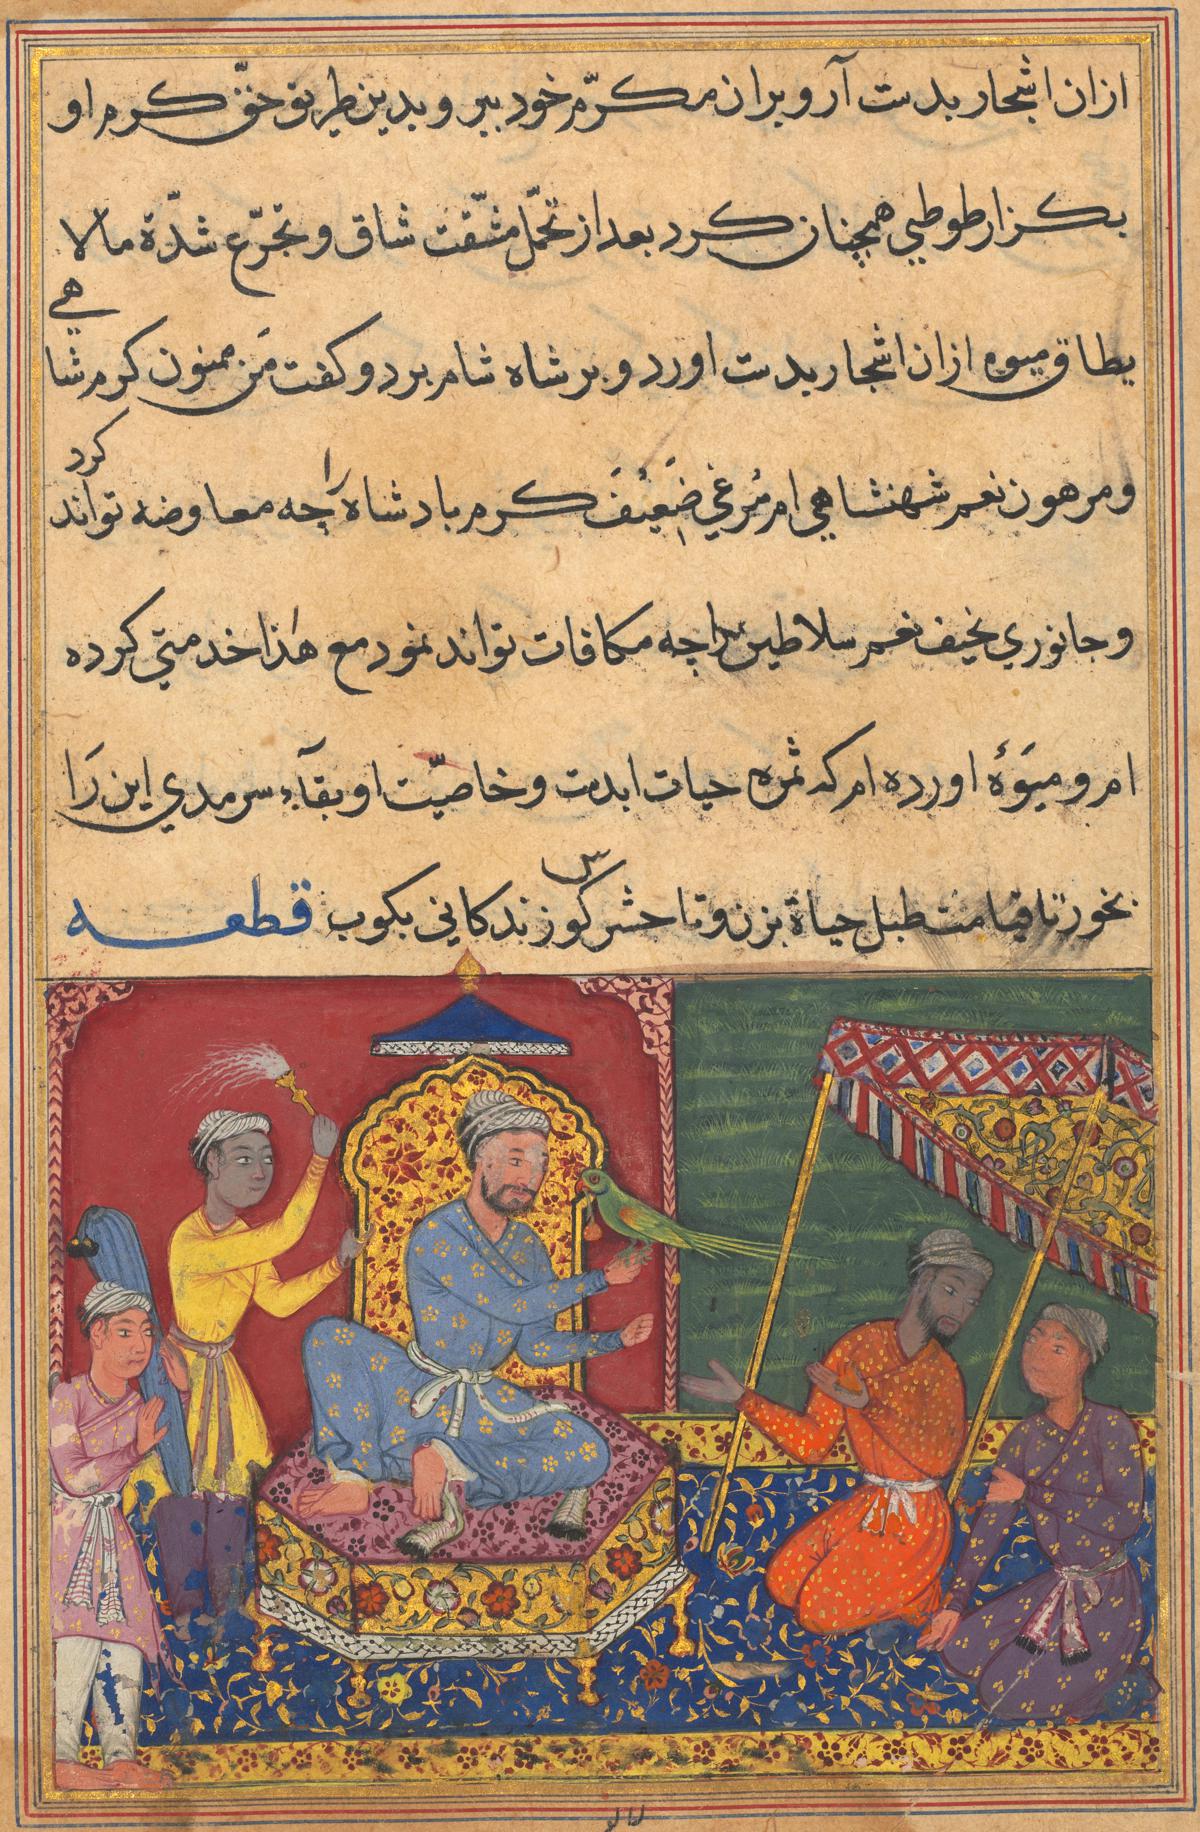 ازان اشجار بدست آر و بران مکرّم خود ببر و بدین طریق حقّ کرم او
بکزار طوطی همچنان کرد بعد از تحمّل مشّقت شاق و تجرّع شدّة مالا
یطاق میوه ازان اشجار بدست اورد و بر شاه شام برد و کفت مَن ممنون کرم شاهی
و مرهون نعم شهنشاهی ام مُرغی ضَعِیْفَ کرم بادشاه را چه معاوضه تواند کرد
و جانوری نحیف نعم سلاطین را چه مکافات تواند نمود مع هٰذا خدمتی کرده
ام و میَوَهٔ اورده ام که ثمره حیات ابدست و خاصیّت او بقآء سرمدی این رَا
بخور تا قیامت طبل حیاة بزن و تا حشر کوس زندکانی بکوب قطعه